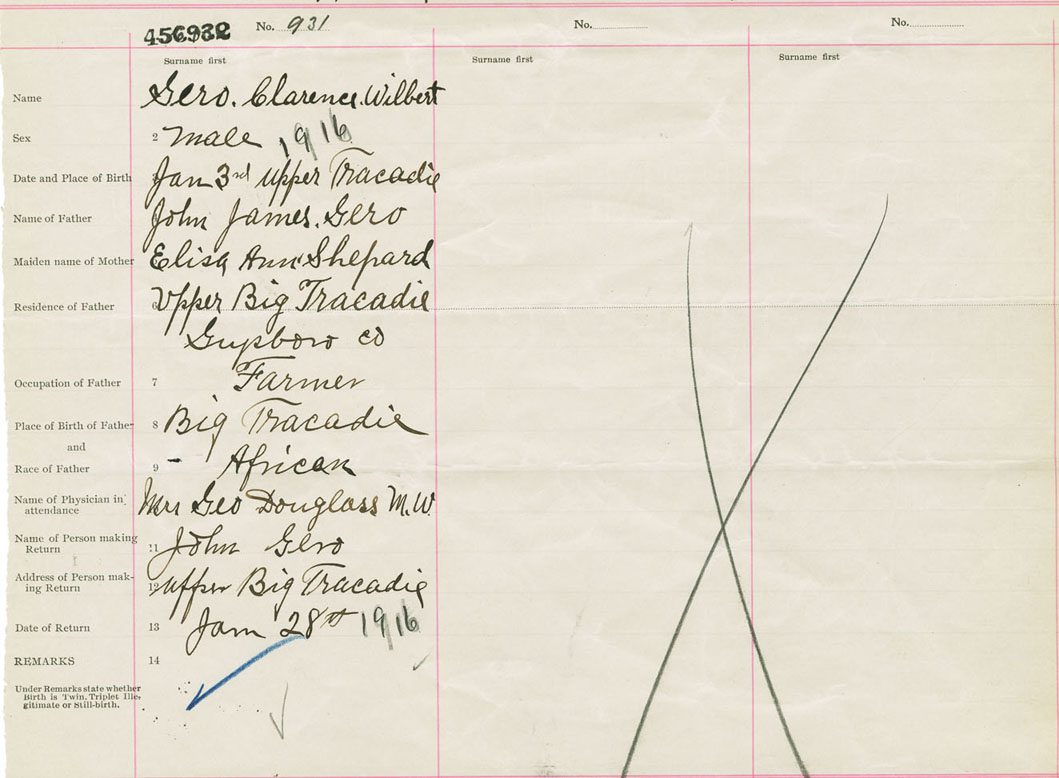 456932 No. 931 No. No.
Surname first Surname first Surname first
Name Gero. Clarence. Wilbert
Sex 2 Male 1916
Date and Place of Birth Jan 3rd Upper Tracadie
Name of Father John James. Gero
Maiden name of Mother Elisa Ann Shepard
Residence of Father 6 Upper Big Tracadie
Guysboro co
Occupation of Father 7 Farmer
Place of Birth of Father 8 Big Tracadie
and
Race of Father 9 - African
Name of Physician in Mrs Geo Douglass M.W
attendance
Name of Person making
Return 11 John Gero
Address of Person mak-
ing Return 12 Upper Big Tracadie
Date of Return 13 Jan 28th 1916
REMARKS 14
Under Remarks state whether
Birth is Twin, Triplet Ille-
gitimate or Still-birth.